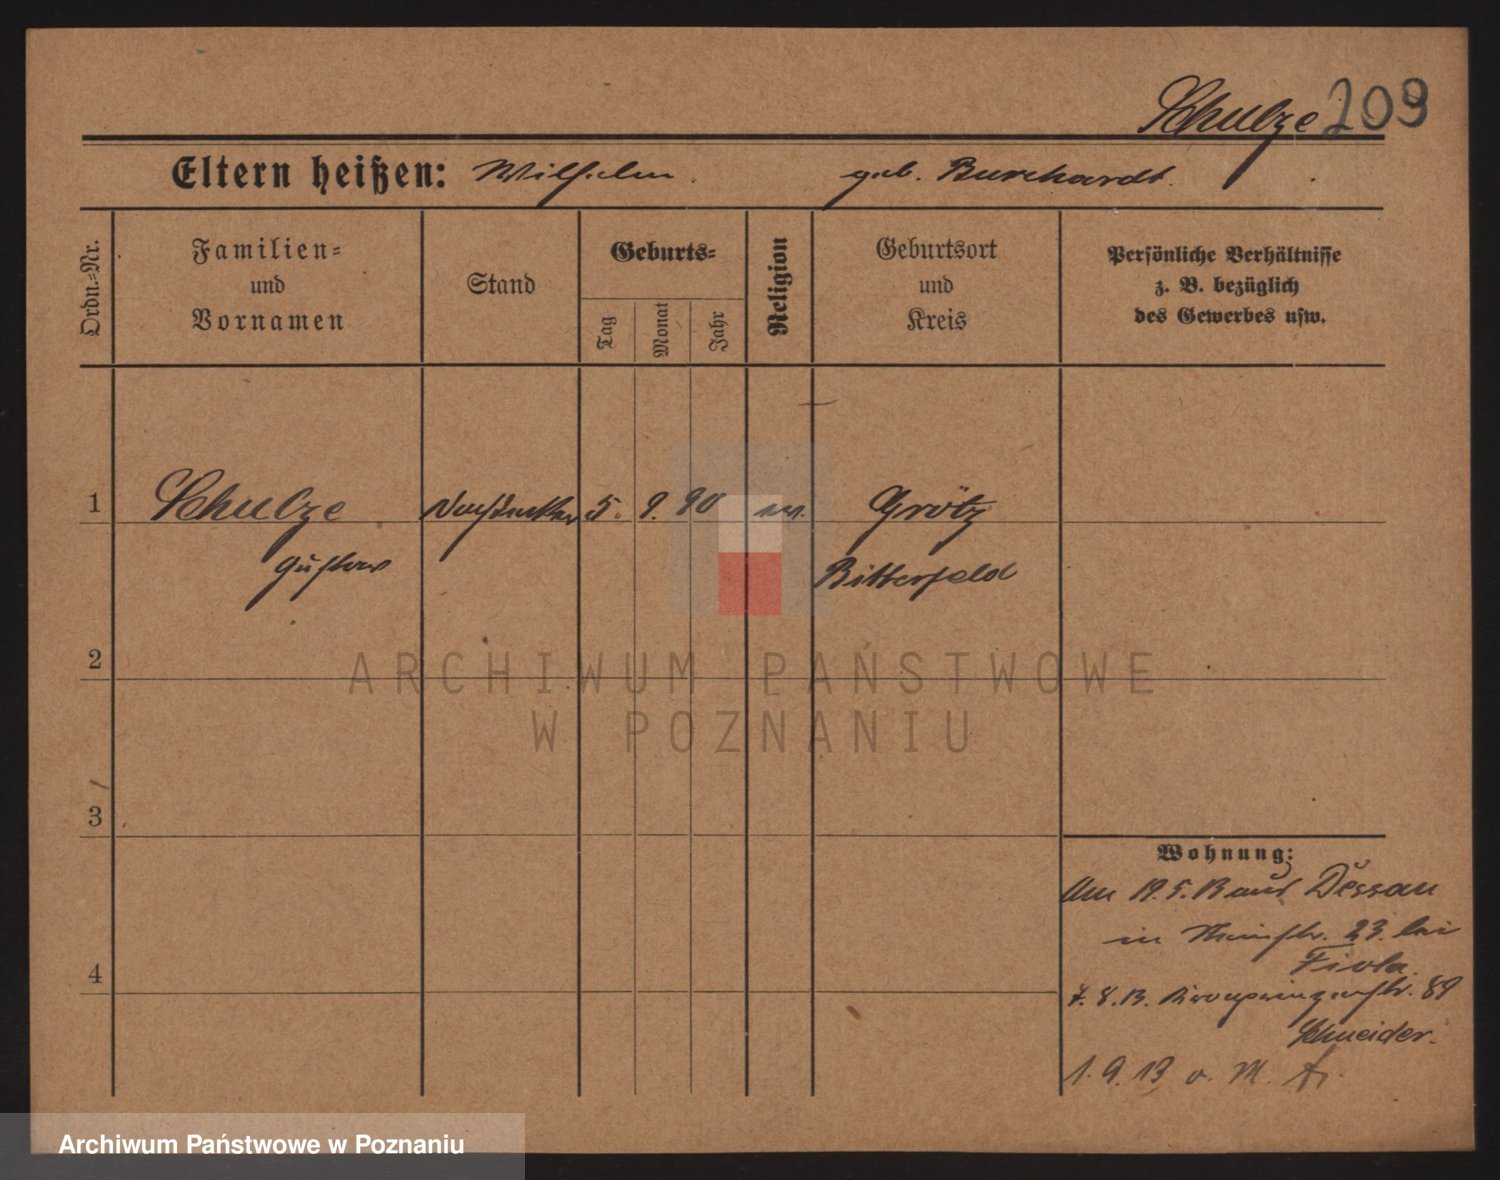 Schulze 209
Eltern heißen: Wilhelm geb. Burchardt.
Ordn.-Nr.
Familien-
und
Vornamen
Stand
Geburts-
Tag
Monat
Jahr
Religion
Geburtsort
und
Kreis
Persönliche Verhältnisse
z. B. bezüglich
des Gewerbes usw.
1 Schulze Dachdecker 5. 9. 90 ev. Grötz
Gustav Bitterfeld
2
ARCHIWUM PAŃSTWOWE
W POZNANIU
3
Wohnung:
Am 19.5.13 aus Dessau
in 23. bei
Fiola.
7.8.13. Kronprinzenstr. 89
Schneider.
4
1.9.13 v. M.
Archiwum Państwowe w Poznaniu